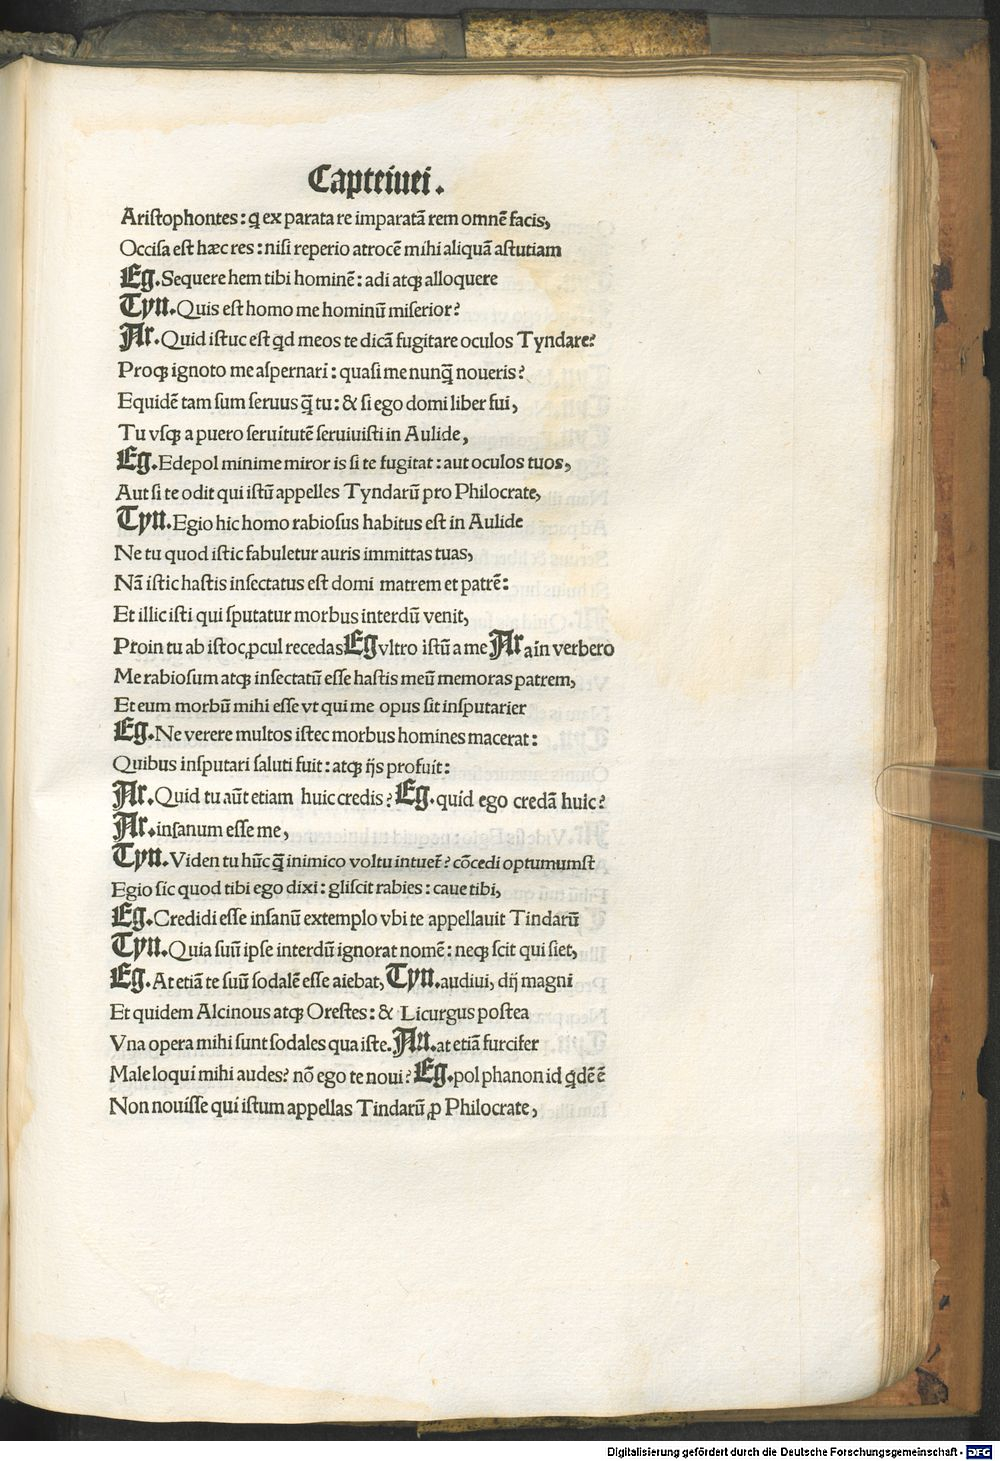 Capteiuei.
Aristophontes: q ex parata re imparatā rem omnē facis,
Occisa est hæc res: nisi reperio atrocē mihi aliquā astutiam
Eg. Sequere hem tibi hominē: adi atqꝫ alloquere
Tyn. Quis est homo me hominū miserior?
Ar. Quid istuc est qd meos te dicā fugitare oculos Tyndare?
Proqꝫ ignoto me aspernari: quasi me nunq̄ noueris?
Equidē tam sum seruus q̄ tu: & si ego domi liber fui,
Tu vsqꝫ a puero seruitutē seruiuisti in Aulide,
Eg. Edepol minime miror is si te fugitat: aut oculos tuos,
Aut si te odit qui istū appelles Tyndarū pro Philocrate,
Tyn. Egio hic homo rabiosus habitus est in Aulide
Ne tu quod istic fabuletur auris immittas tuas,
Nā istic hastis insectatus est domi matrem et patrē:
Et illic isti qui sputatur morbus interdū venit,
Proin tu ab istoc ꝓcul recedas Eg vltro istū a me Ar ain verbero
Me rabiosum atqꝫ insectatū esse hastis meū memoras patrem,
Et eum morbū mihi esse vt qui me opus sit insputarier
Eg. Ne verere multos istec morbus homines macerat:
Quibus insputari saluti fuit: atqꝫ ijs profuit:
Ar. Quid tu aūt etiam huic credis? Eg. quid ego credā huic?
Ar. insanum esse me,
Tyn. Viden tu hūc q̄ inimico voltu intuet̄? cōcedi optumumst
Egio sic quod tibi ego dixi: gliscit rabies: caue tibi,
Eg. Credidi esse insanū extemplo vbi te appellauit Tindarū
Tyn. Quia suū ipse interdū ignorat nomē: neqꝫ scit qui siet,
Eg. At etiā te suū sodalē esse aiebat, Tyn. audiui, dij magni
Et quidem Alcinous atqꝫ Orestes: & Licurgus postea
Vna opera mihi sunt sodales qua iste. An. at etiā furcifer
Male loqui mihi audes? nō ego te noui? Eg. pol phanon id qdē ē
Non nouisse qui istum appellas Tindarū ꝓ Philocrate,
Digitalisierung gefördert durch die Deutsche Forschungsgemeinschaft - DFG